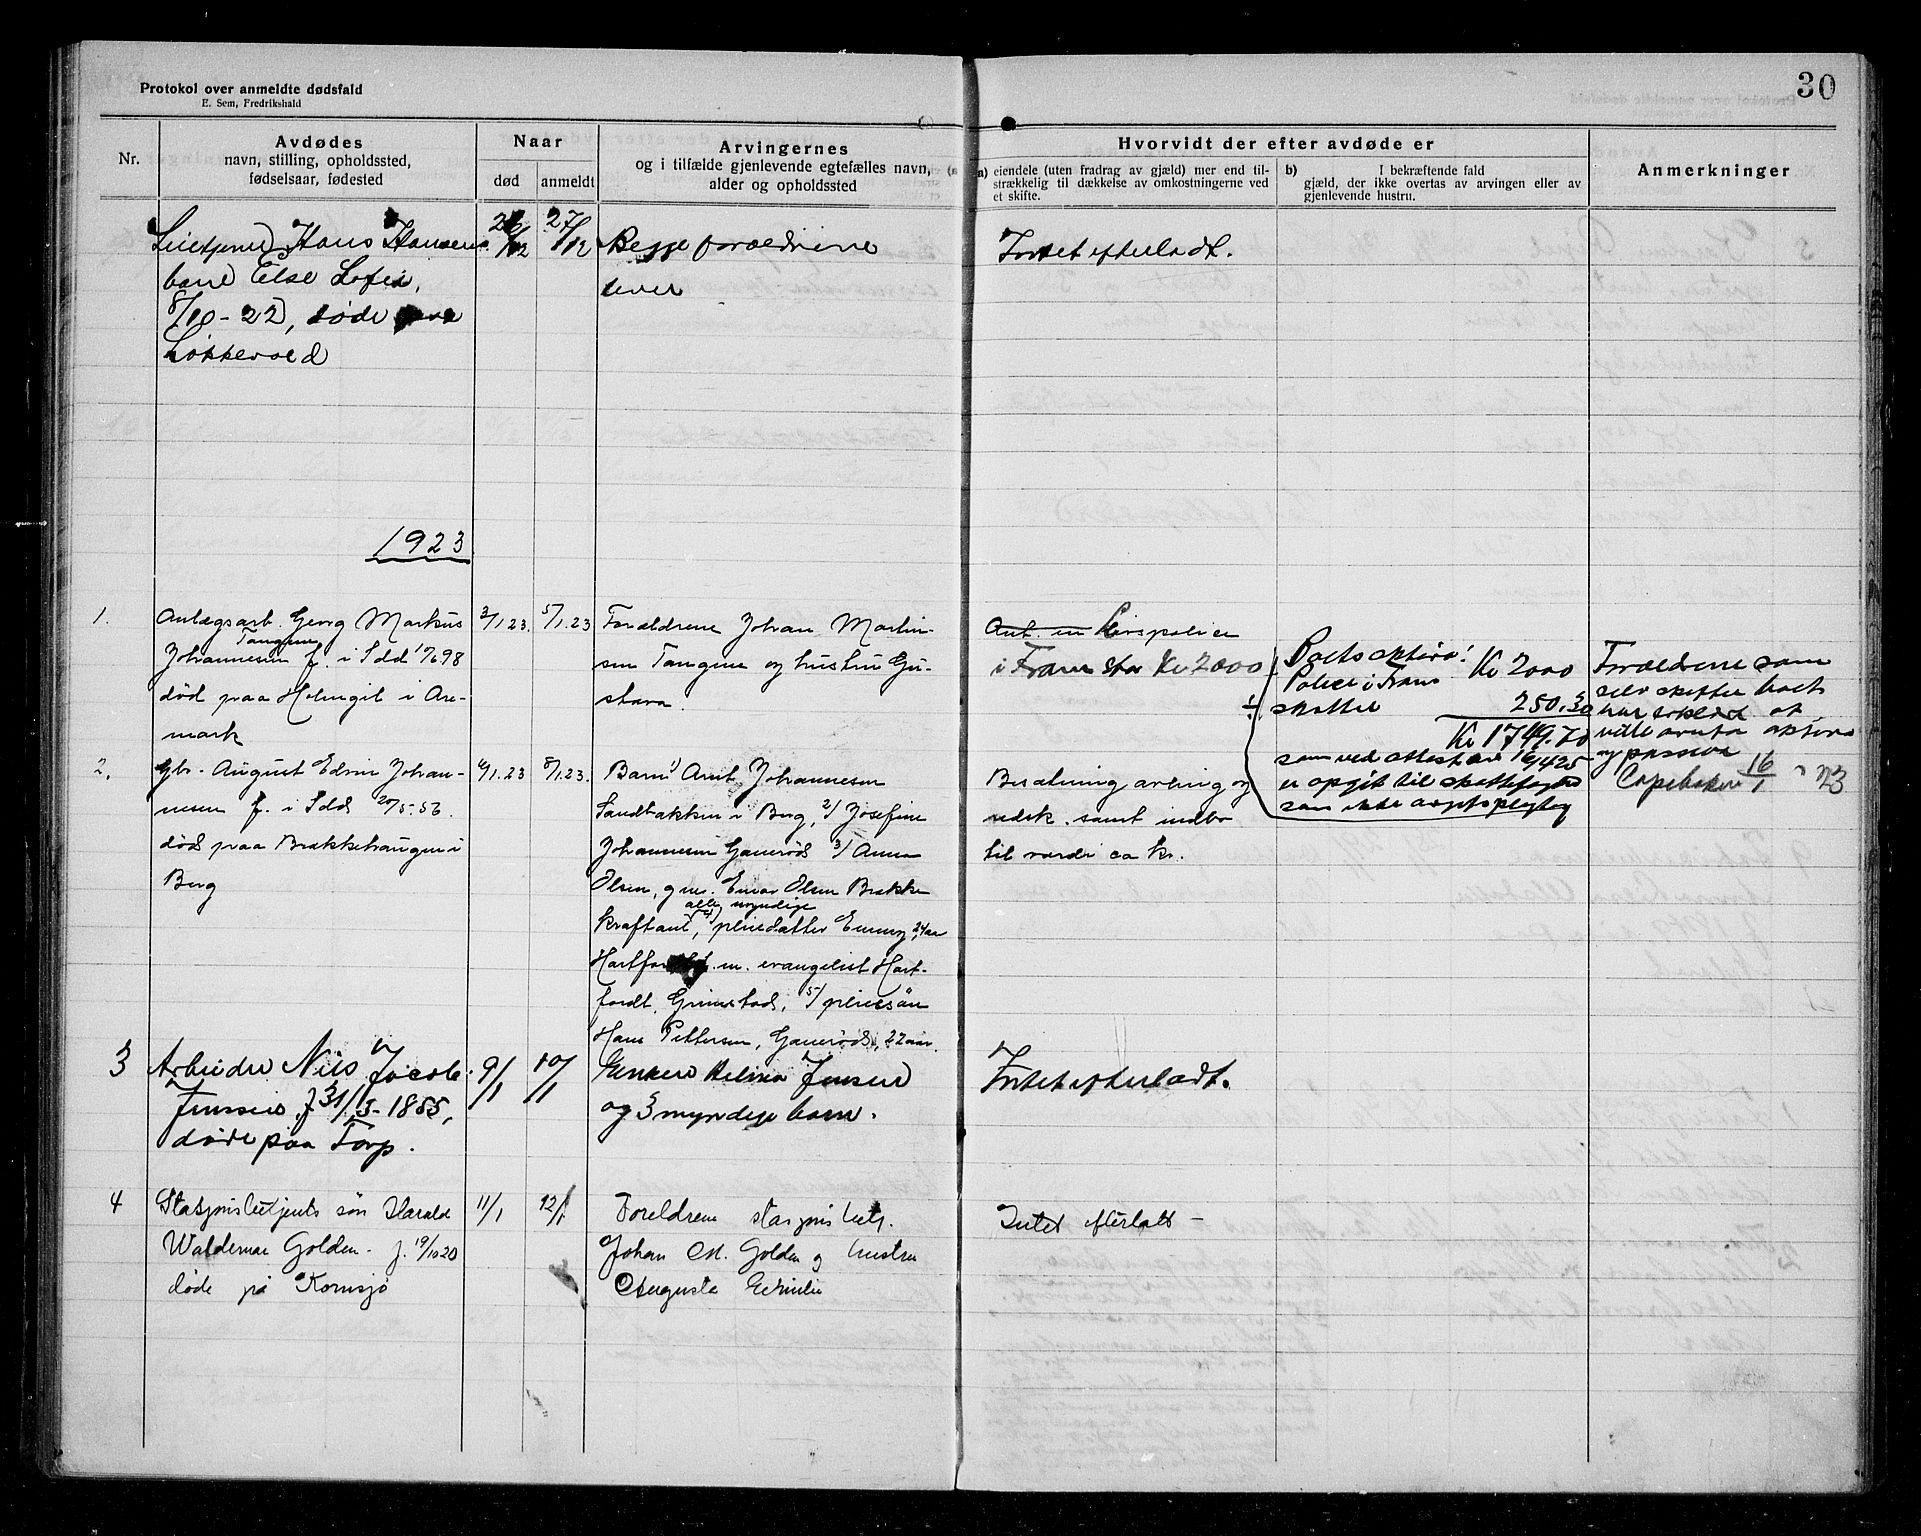 Protokol over anmeldte dødsfald
E. Sem, Fredrikshald
30
Nr.
Avdødes
navn, stilling, opholdssted,
fødselsaar, fødested
Naar
død
anmeldt
Arvingernes
og i tilfælde gjenlevende egtefælles navn,
alder og opholdssted
Hvorvidt der efter avdøde er
a) eiendele (uten fradrag av gjæld) mer end til-
strækkelig til dækkelse av omkostningerne ved
et skifte.
b) I bekræftende fald
gjæld, der ikke overtas av arvingen eller av
gjenlevende hustru.
Anmerkninger
Hans Hansens
barn Else
8/10-22, døde
Løkkevold
27/12
Begge forældrene
lever
Intet efterladt.
1923
1.
Anlægsarb. Georg Markus
Tangene
Johannesen f. i Idd 98
død paa Holmgil i Are-
mark
3/1.23.
5/1.23
Forældrene Johan Martin-
sen Tangene og hustru Gu-
stava.
Ant. en Livspolice
i Fram stor Kr 2000
Boets aktiva:
Police i Fram Kr 2000
÷ skatter 250.30
Kr 1749.70
som ved attest av
er opgit til skattefogden
som ikke avgiftspligtig
Forældrene som
selv skifter boet
har erklært at
ville overta aktiva
og passiva
16/1 23
2.
Gbr. August Edvin Johan-
nesen f. i Idd 20/5-56.
død paa Brækkehaugen i
Berg
6/1.23
8/1.23.
Barn 1/ Arnt Johannesen
Sandbakken i Berg, 2/ Josefine
Johannesen Ganerød 3/ Anna
Olsen, g.m. Einar Olsen Brække
alle myndige
kraftanl, 4/ pleiedatter Emmy 24 aar
m. evangelist Hart-
fordt, Grimstad, 5/ pleiesøn
Hans Pettersen, Ganerød, 22 aar.
Besætning avling og
redsk. samt indbo
til værdi ca kr.
3
Arbeider Nils Jacob
Jensen f 31/3-1855,
døde paa Torp.
9/1
10/1
Enken Helma Jensen
og 3 myndige barn.
Intet efterladt.
4
Stasjonsbetjents søn Harald
Waldemar Golden. f. 19/10 20
døde på Kornsjø
11/1
12/1
Foreldrene stasjonsbetj.
Johan M. Golden og hustru
Augusta Emilie
Intet efterlatt -